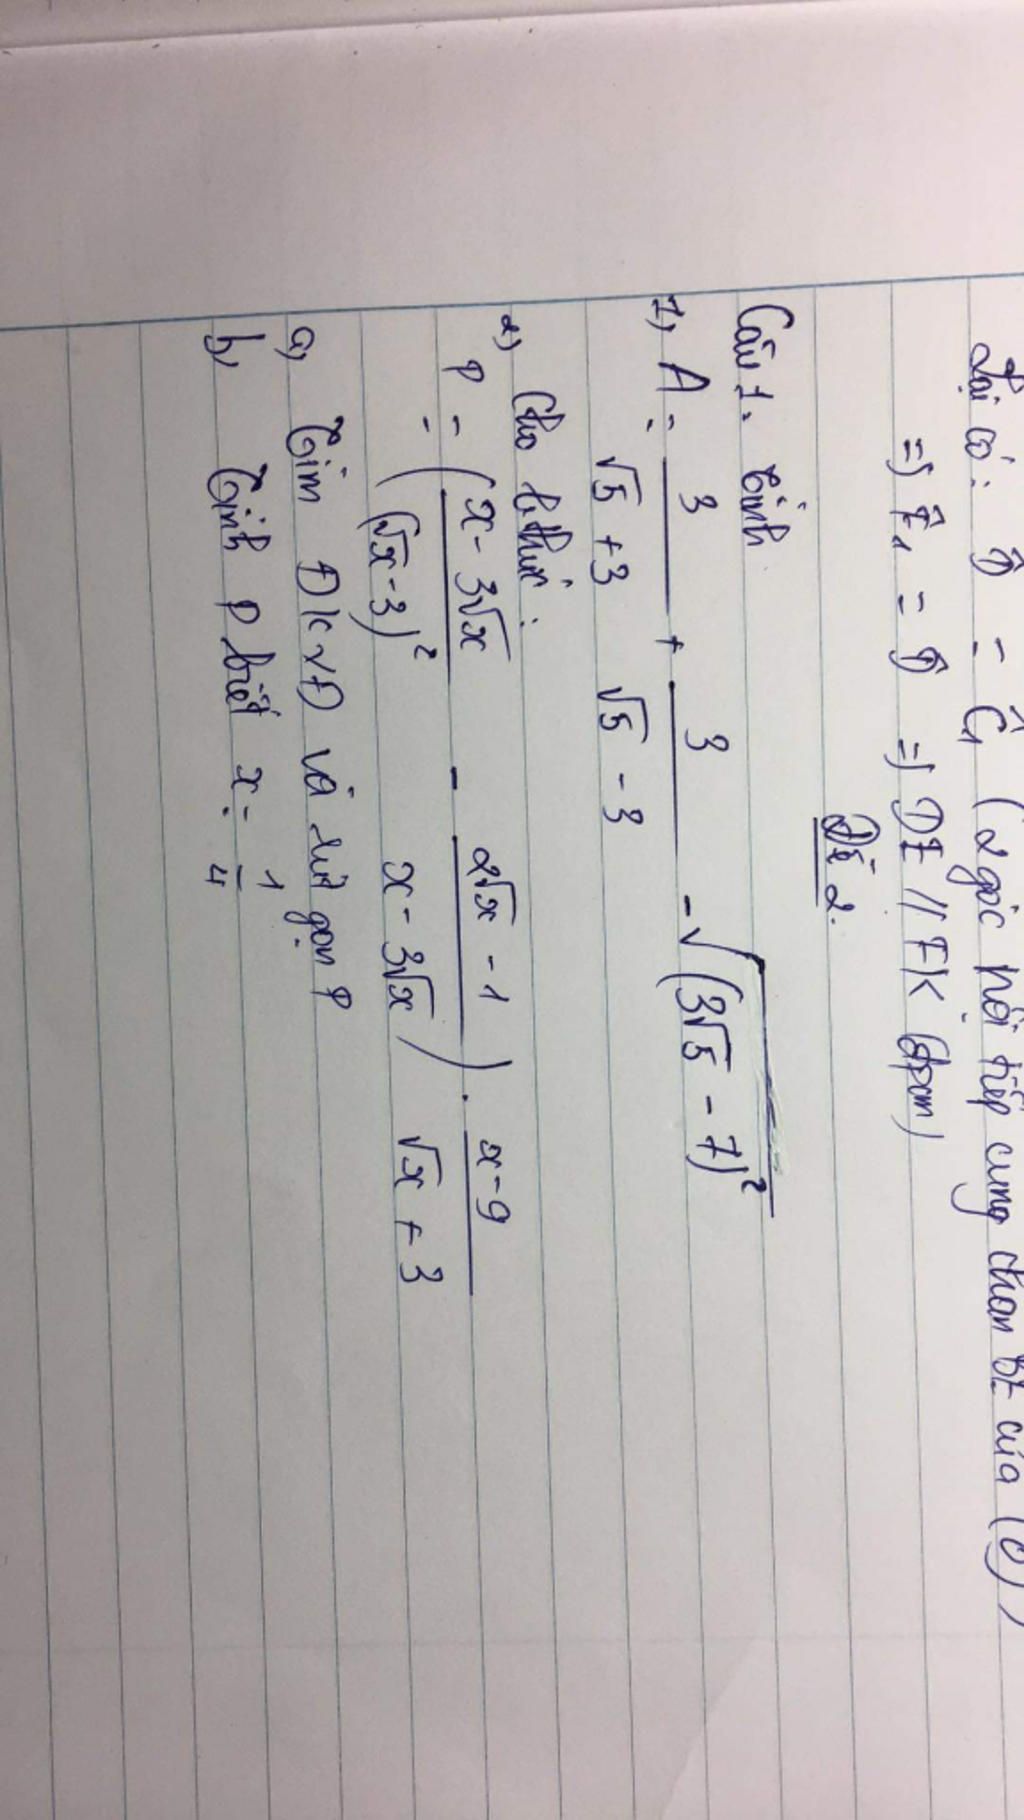 Lại có: D̂ = Ĉ₁ (2 góc nội tiếp cùng chắn BE của (O))
=> Ê₁ = D̂ => DE // FK (đpcm)
Đề 2.
Câu 1. Tính
1) A = 3/(√5 + 3) + 3/(√5 - 3) - √((3√5 - 7)²)
2) Cho b thức:
P = ((x - 3√x)/(√x - 3)² - (2√x - 1)/(x - 3√x)) . (x - 9)/(√x + 3)
a) Tìm ĐKXĐ và rút gọn P
b) Tính P biết x = 1/4